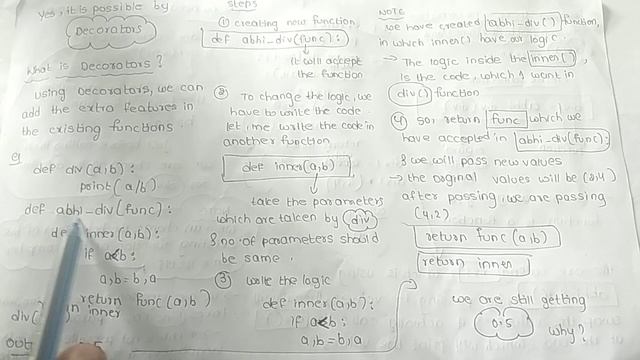 yes, it is possible by
Decorators
What is Decorators?
using Decorators, we can
add the extra features in
the existing functions.
eg
def div(a,b):
print(a/b)
def abhi-div(func):
def inner(a,b):
if a<b:
a,b=b,a
return func(a,b)
return inner
div(
out
steps
① creating new function
def abhi-div(func):
it will accept
the function
② To change the logic, we
have to write the code.
let, me write the code in
another function.
def inner(a,b)
take the parameters
which are taken by div
& no of parameters should
be same.
③ write the logic
def inner(a,b):
if a<b:
a,b=b,a
NOTE
we have created abhi-div() function,
in which inner() have our logic.
→ The logic inside the inner(),
is the code, which I want in
div() function
④ so, return func which we
have accepted in abhi-div(func):
& we will pass new values
→ the orginal values will be (2,4)
after passing, we are passing
(4,2)
return func(a,b)
return inner
we are still getting
0.5 why?